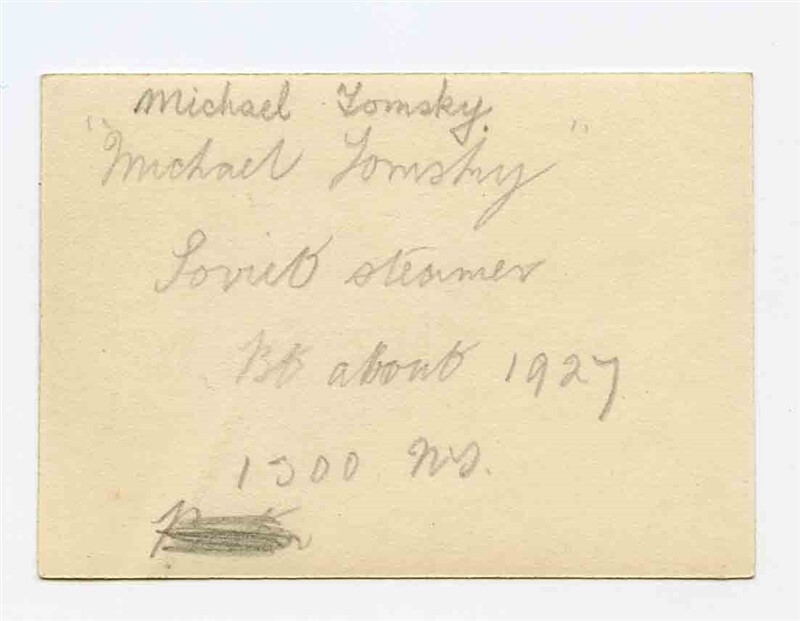 Michael Tomsky.
"Michael Tomsky"
Soviet steamer
Bt about 1927
1300